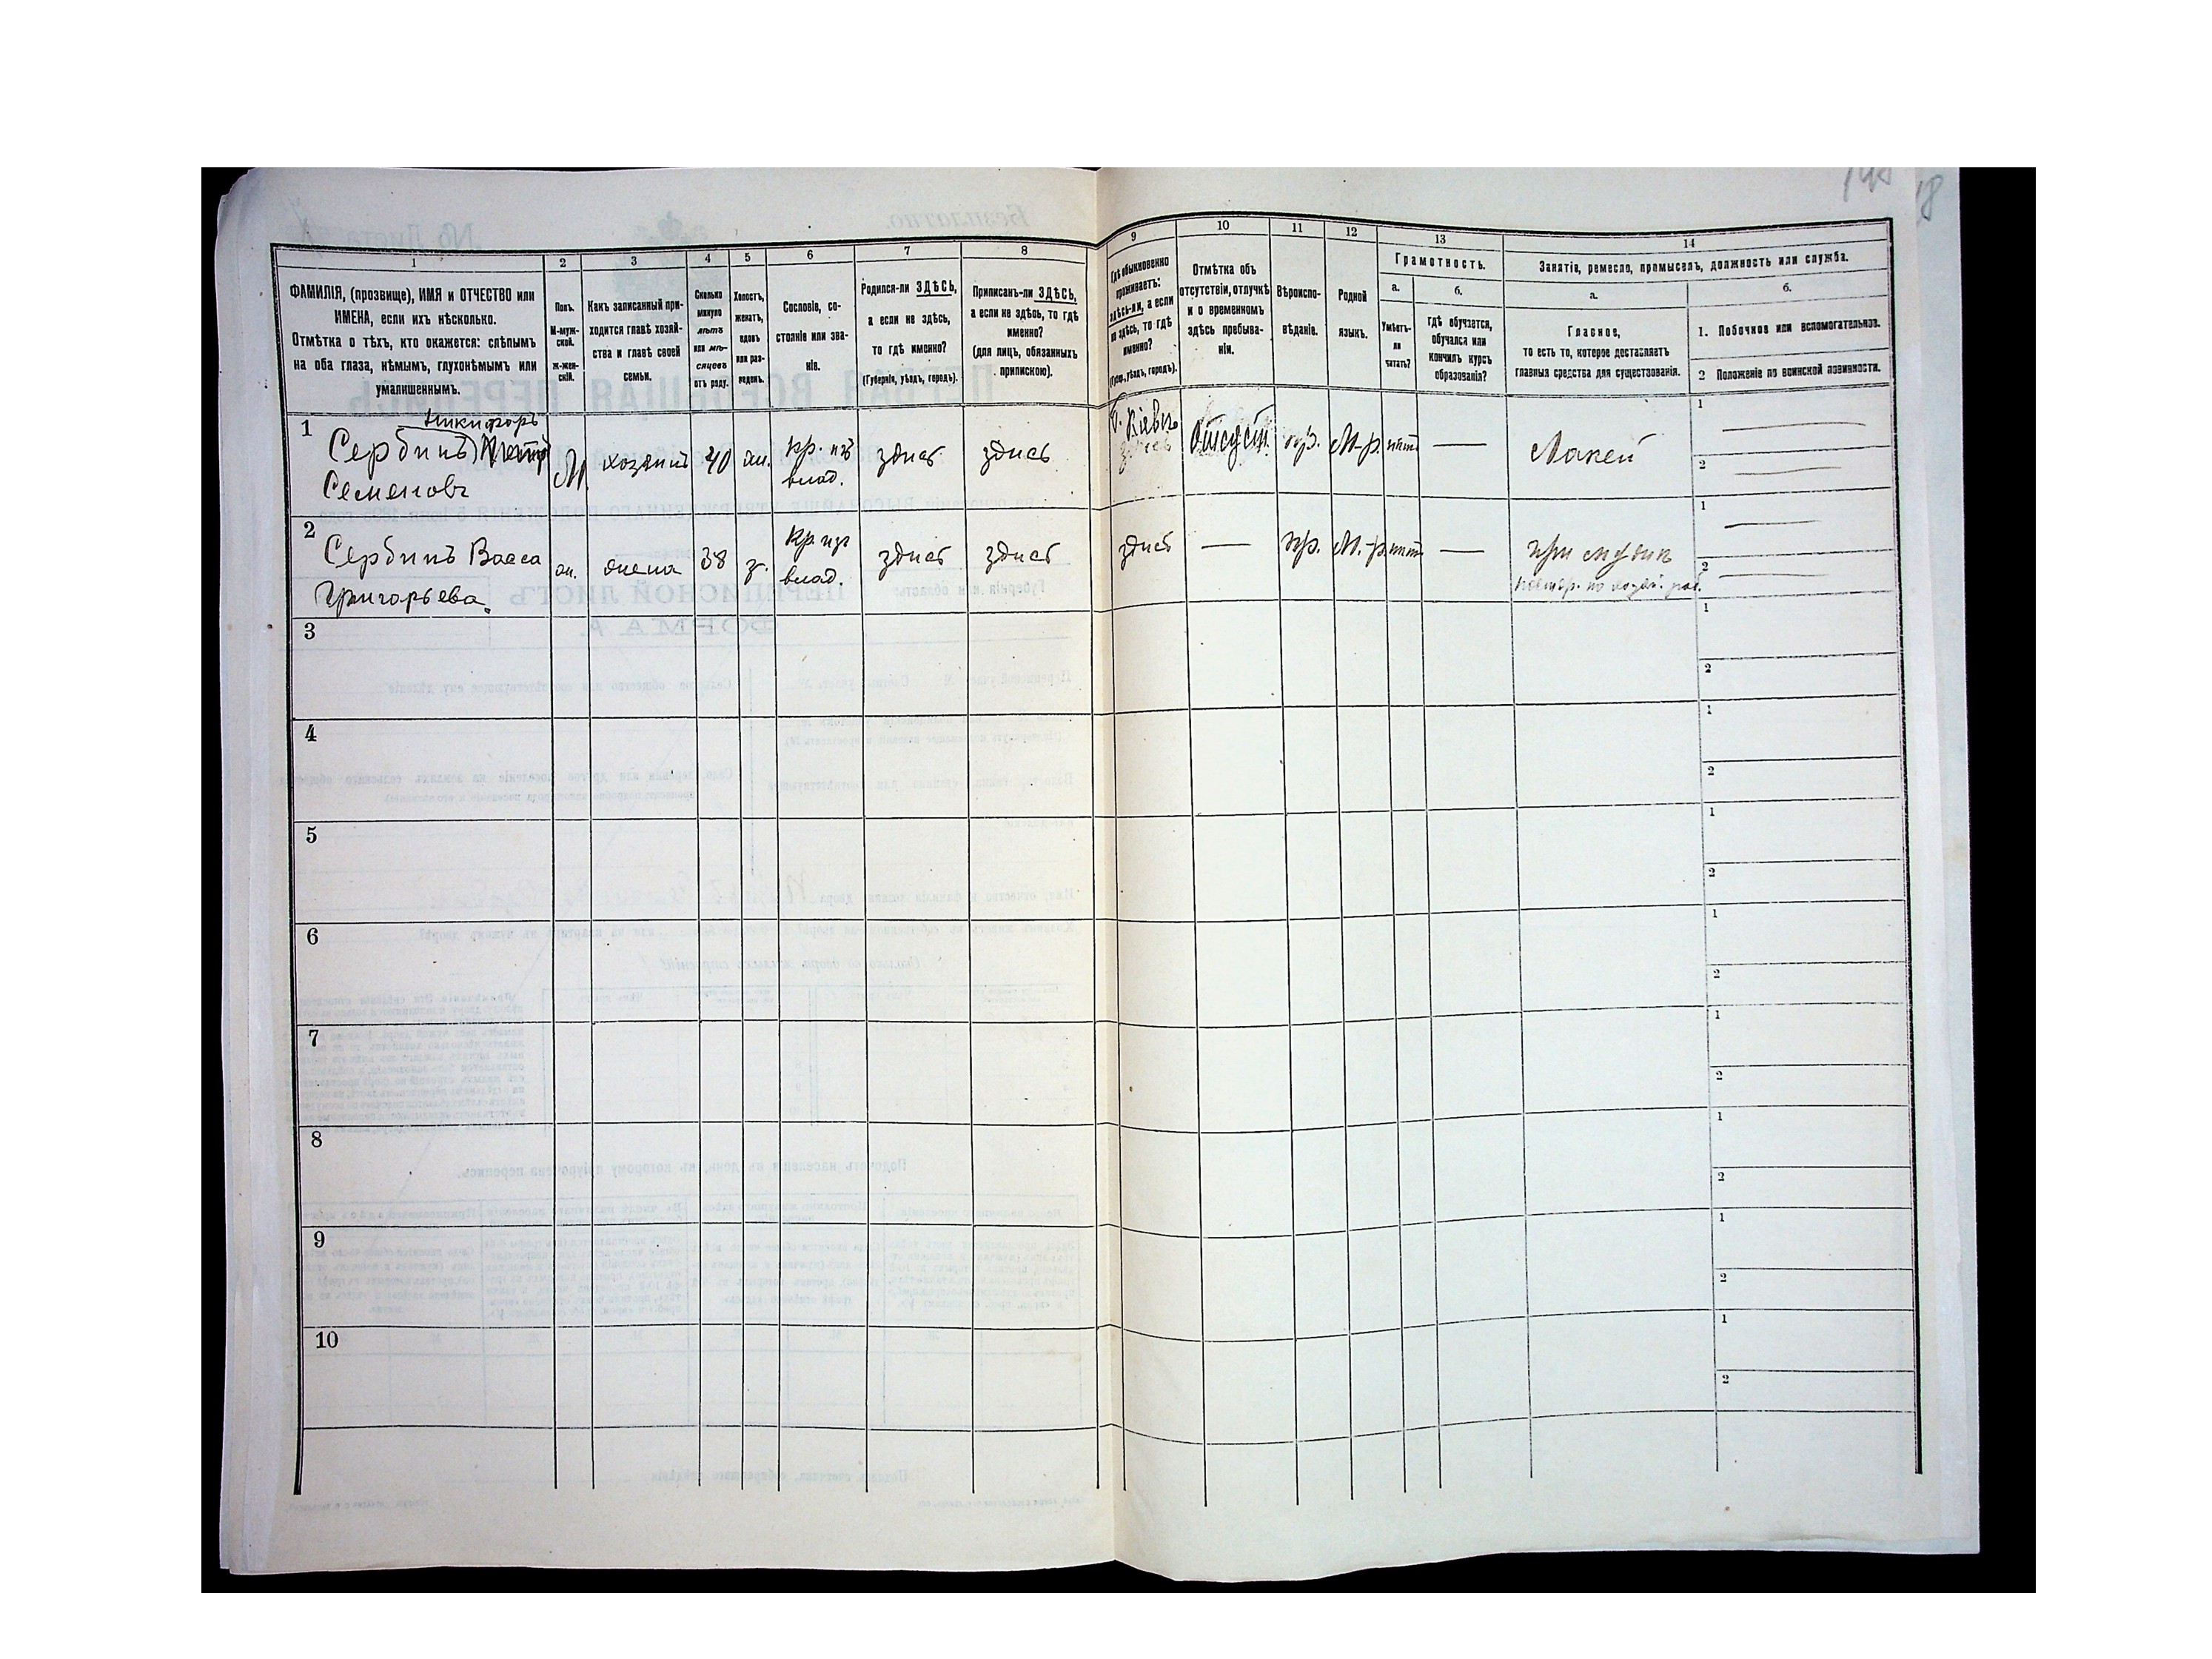 1 2 3 4 5 6 7 8 9 10 11 12 13 14
ФАМИЛІЯ, (прозвище), ИМЯ и ОТЧЕСТВО или
ИМЕНА, если ихъ нѣсколько.
Отмѣтка о тѣхъ, кто окажется: слѣпымъ
на оба глаза, нѣмымъ, глухонѣмымъ или
умалишеннымъ.
Полъ.
М-муж-
ской.
ж-жен-
скій.
Какъ записанный при-
ходится главѣ хозяй-
ства и главѣ своей
семьи.
Сколько
минуло
лѣтъ
или мѣ-
сяцевъ
отъ роду.
Холостъ,
женатъ,
вдовъ
или раз-
веденъ.
Сословіе, со-
стояніе или зва-
ніе.
Родился-ли ЗДѢСЬ,
а если не здѣсь,
то гдѣ именно?
(Губернія, уѣздъ, городъ).
Приписанъ-ли ЗДѢСЬ,
а если не здѣсь, то гдѣ
именно?
(для лицъ, обязанныхъ
припискою).
Гдѣ обыкновенно
проживаетъ:
здѣсь-ли, а если
не здѣсь, то гдѣ
именно?
(Губ., уѣздъ, городъ).
Отмѣтка объ
отсутствіи, отлучкѣ
и о временномъ
здѣсь пребыва-
ніи.
Вѣроиспо-
вѣданіе.
Родной
языкъ.
Грамотность.
а.
Умѣетъ-
ли
читать?
б.
Гдѣ обучается,
обучался или
кончилъ курсъ
образованія?
Занятіе, ремесло, промыселъ, должность или служба.
а.
Главное,
то есть то, которое доставляетъ
главныя средства для существованія.
б.
1. Побочное или вспомогательное.
2 Положеніе по воинской повинности.
Никифоръ
1 Сербинъ
Семеновъ
М хозяинъ 40 жн. кр. изъ
влад.
здѣсь здѣсь г. Кіевъ Отсут. пр. М-р. нѣтъ — Лакей
1 —
2 —
2 Сербинъ Васса
Григорьева.
ж. жена 38 з. кр изъ
влад.
здѣсь здѣсь здѣсь — пр. М.-р. нѣтъ — при мужѣ
1 —
2 —
3 1
2
4 1
2
5 1
2
6 1
2
7 1
2
8 1
2
9 1
2
10 1
2